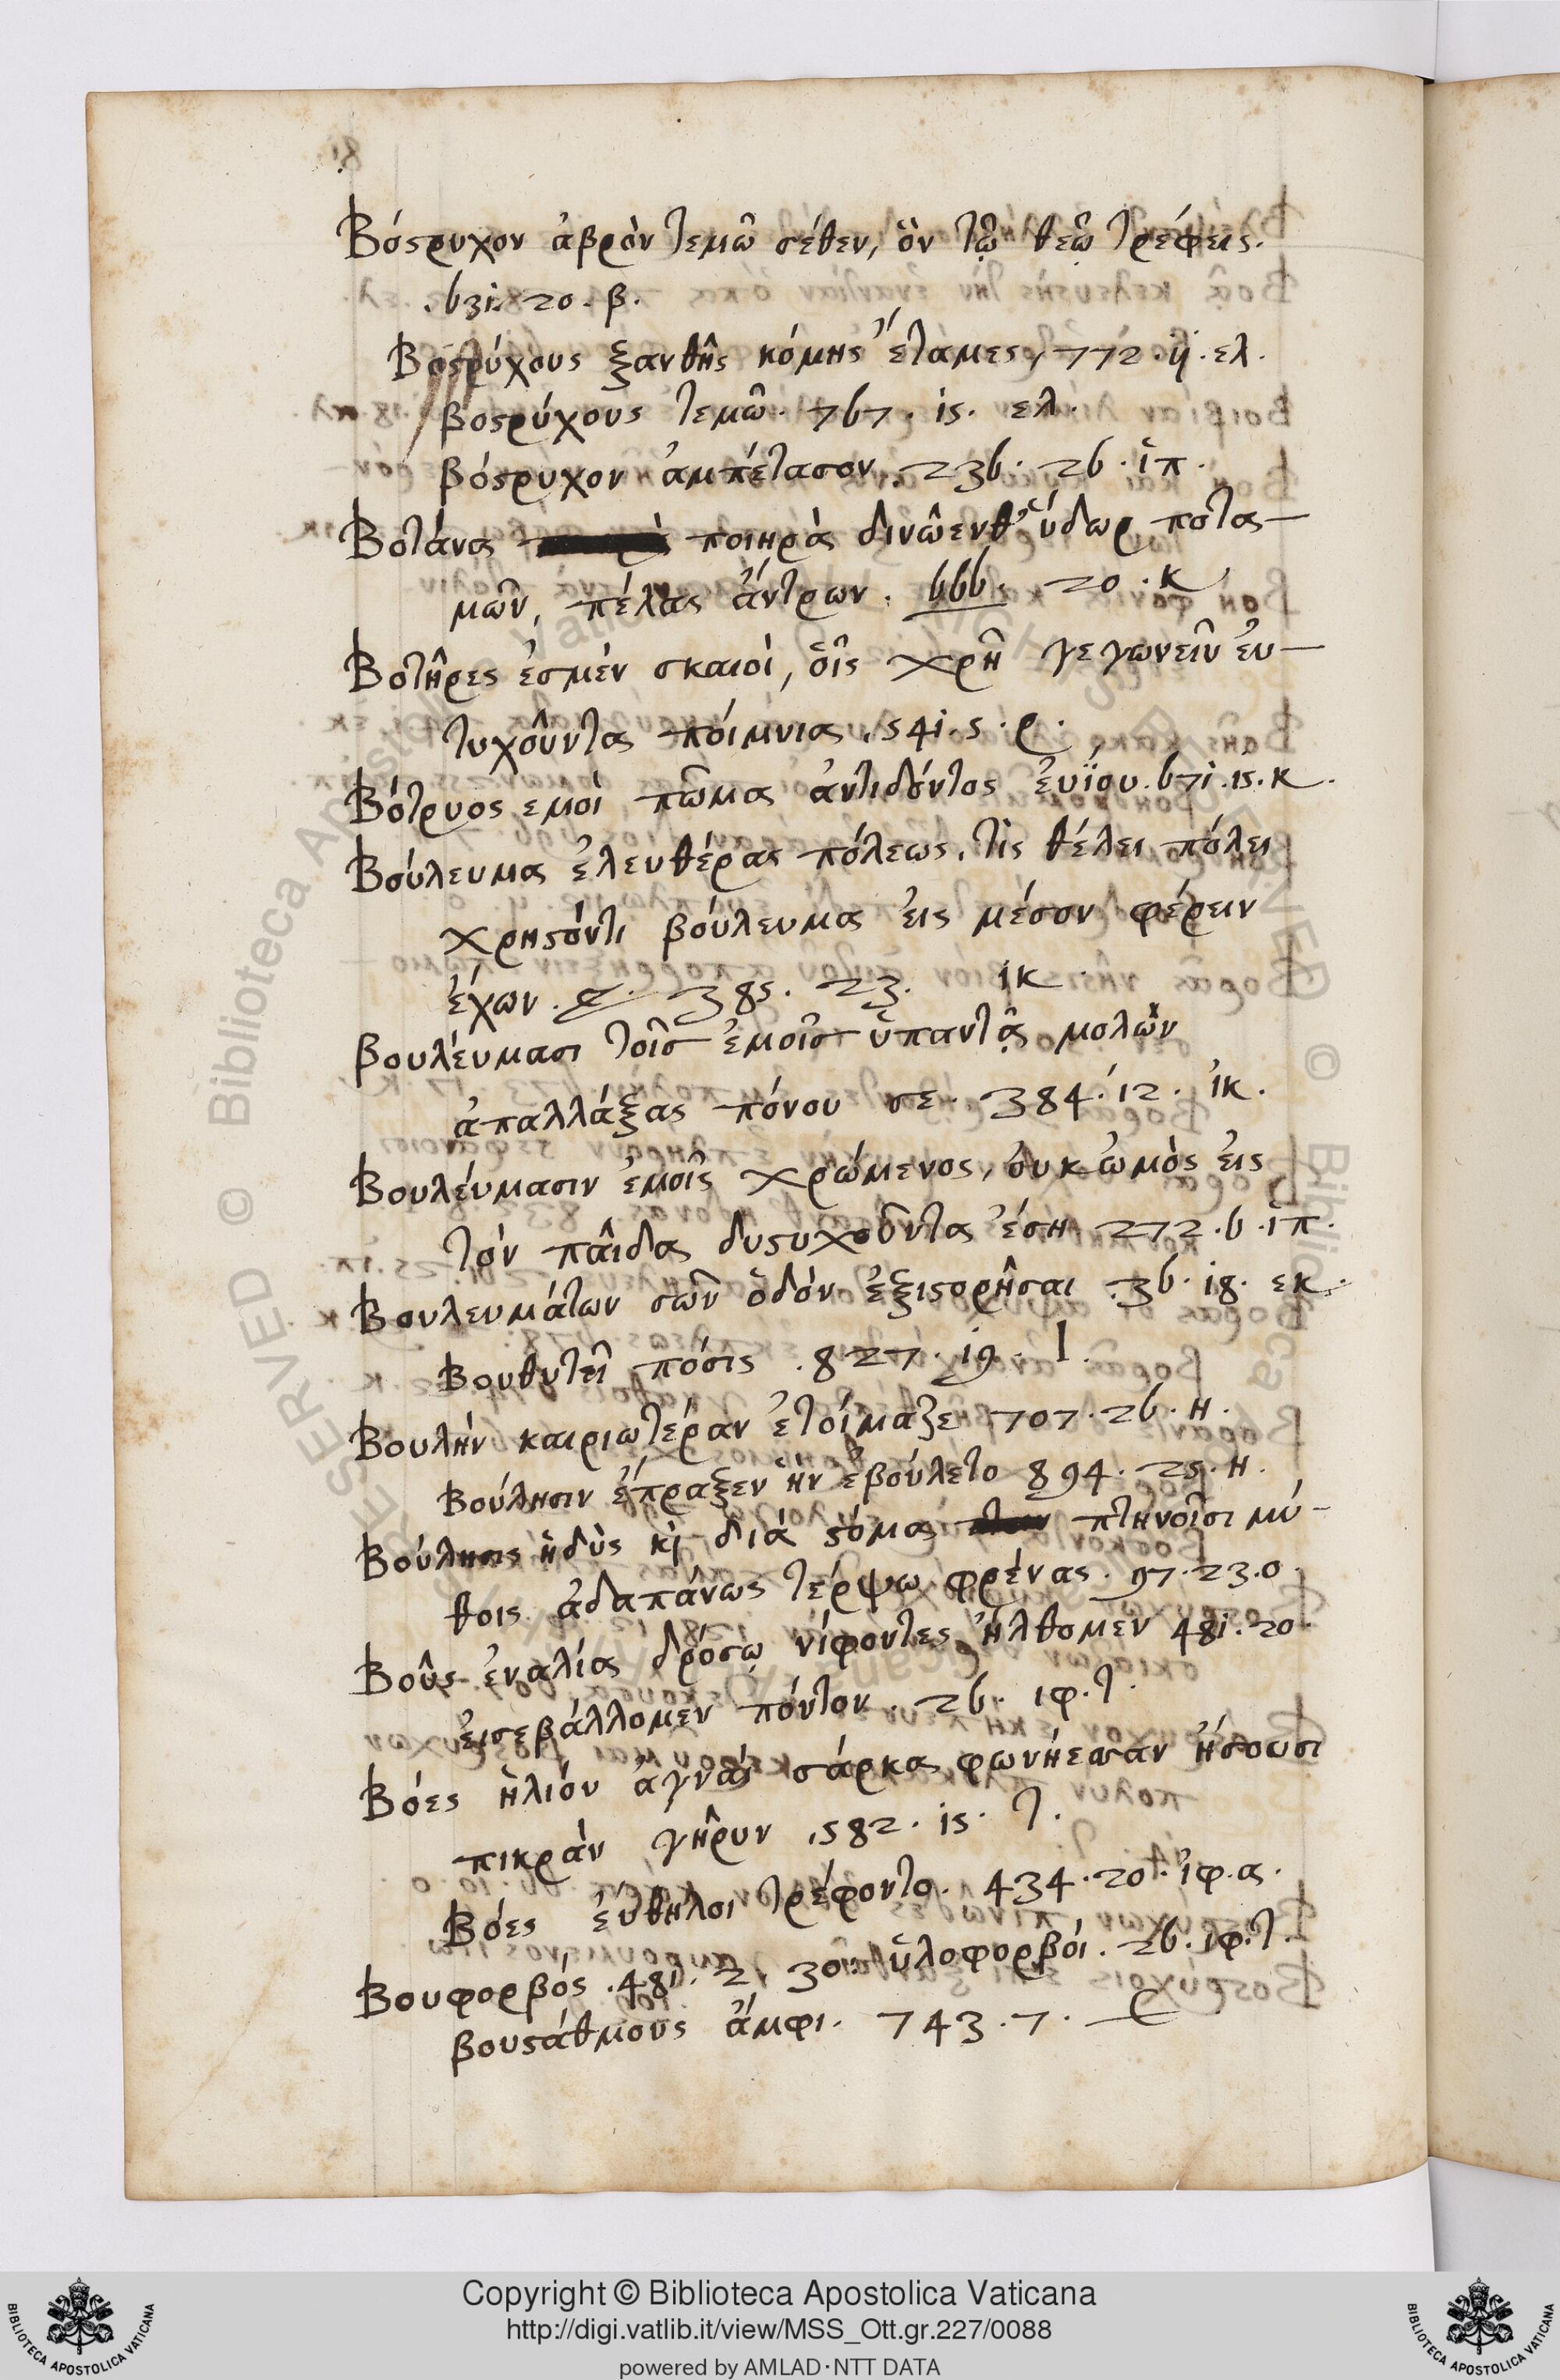 Βόστρυχον ἁβρὸν τεμῶ σέθεν, ὃν τῷ θεῷ τρέφεις.
.631. 20. β.
Βοστρύχους ξανθῆς κόμης ἔταμες, 772. ij. ελ.
βοστρύχους τεμῶ. 767. is. ελ.
βόστρυχον ἀμπέτασον. 236. 26. ἱπ.
Βοτάνα ποιηρὰ δινῶενθ' ὕδωρ ποτα-
μῶν, πέλας ἄντρων. 666. 20. κ
Βοτῆρες ἐσμὲν σκαιοὶ, οἷς χρῆ γεγωνεῖν ἐυ-
τυχοῦντα ποίμνια. 541. 5. ρ.
Βότρυος εμοὶ πῶμα ἀντιδόντος ἐυΐου. 671. 15. κ.
Βούλευμα ἐλευθέρας πόλεως. τὶς θέλει πόλει
χρηστόντι βούλευμα ἐις μέσον φέρειν
ἔχων. 385. 23. ικ
βουλέυμασι τοῖσ ἐμοῖσ ὑπαντᾷ μολὼν
ἀπαλλάξας πόνου σε. 384. 12. ἱκ.
Βουλέυμασιν ἐμοῖς χρώμενος, ὀυκ ὠμὸς ἐις
τὸν παῖδα δυστυχοῦντα ἔση 272. 6. ἱπ.
Βουλευμάτων σῶν ὁδὸν ἐξιστορῆσαι .36. 18. εκ.
Βουθυτεῖ πόσις .827. 19. Ι.
Βουλὴν καιριωτέραν ἑτοίμαζε 707. 26. Η.
Βούλησιν ἔπραξεν ἣν ἐβούλετο 894. 25. Η.
Βούλησις ἡδὺς κὶ διὰ στόμα πτηνοῖσι μύ-
θοις ἀδαπάνως τέρψω φρένας. 97. 23. ο.
Βοῦς ἐναλίᾳ δρόσῳ νίφοντες ἤλθομεν 481. 20.
ἐισεβάλλομεν πόντον. 26. ιφ. τ.
Βόες ἡλιόυ ἁγναὶ σάρκα φωνήεσσαν ἥσουσι
πικρὰν γῆρυν .582. is. τ.
Βόες ἐύθηλοι τρέφοντο. 434. 20. ἰφ. α.
Βουφορβός. 481. 2. 30. ὑλοφορβόι. 26. ιφ. τ.
βουστάθμους ἄμφι. 743. 7.
© Biblioteca Apostolica Vaticana
Copyright © Biblioteca Apostolica Vaticana
http://digi.vatlib.it/view/MSS_Ott.gr.227/0088
powered by AMLAD·NTT DATA
BIBLIOTECA APOSTOLICA VATICANA
BIBLIOTECA APOSTOLICA VATICANA